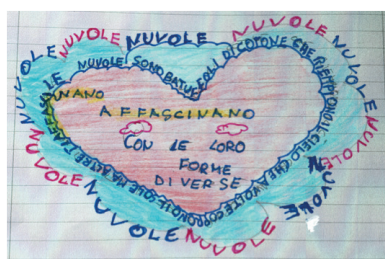 NUVOLE
NUVOLE
NUVOLE
NUVOLE
NUVOLE
NUVOLE
NUVOLE
NUVOLE
NUVOLE
NUVOLE
NUVOLE SONO BATUFFOLI DI COTONE CHE RIEMPIONO IL CIELO CHE A VOLTE COPRONO IL SOLE MA ALTRE
AFFASCINANO
CON LE LORO
FORME
DIVERSE